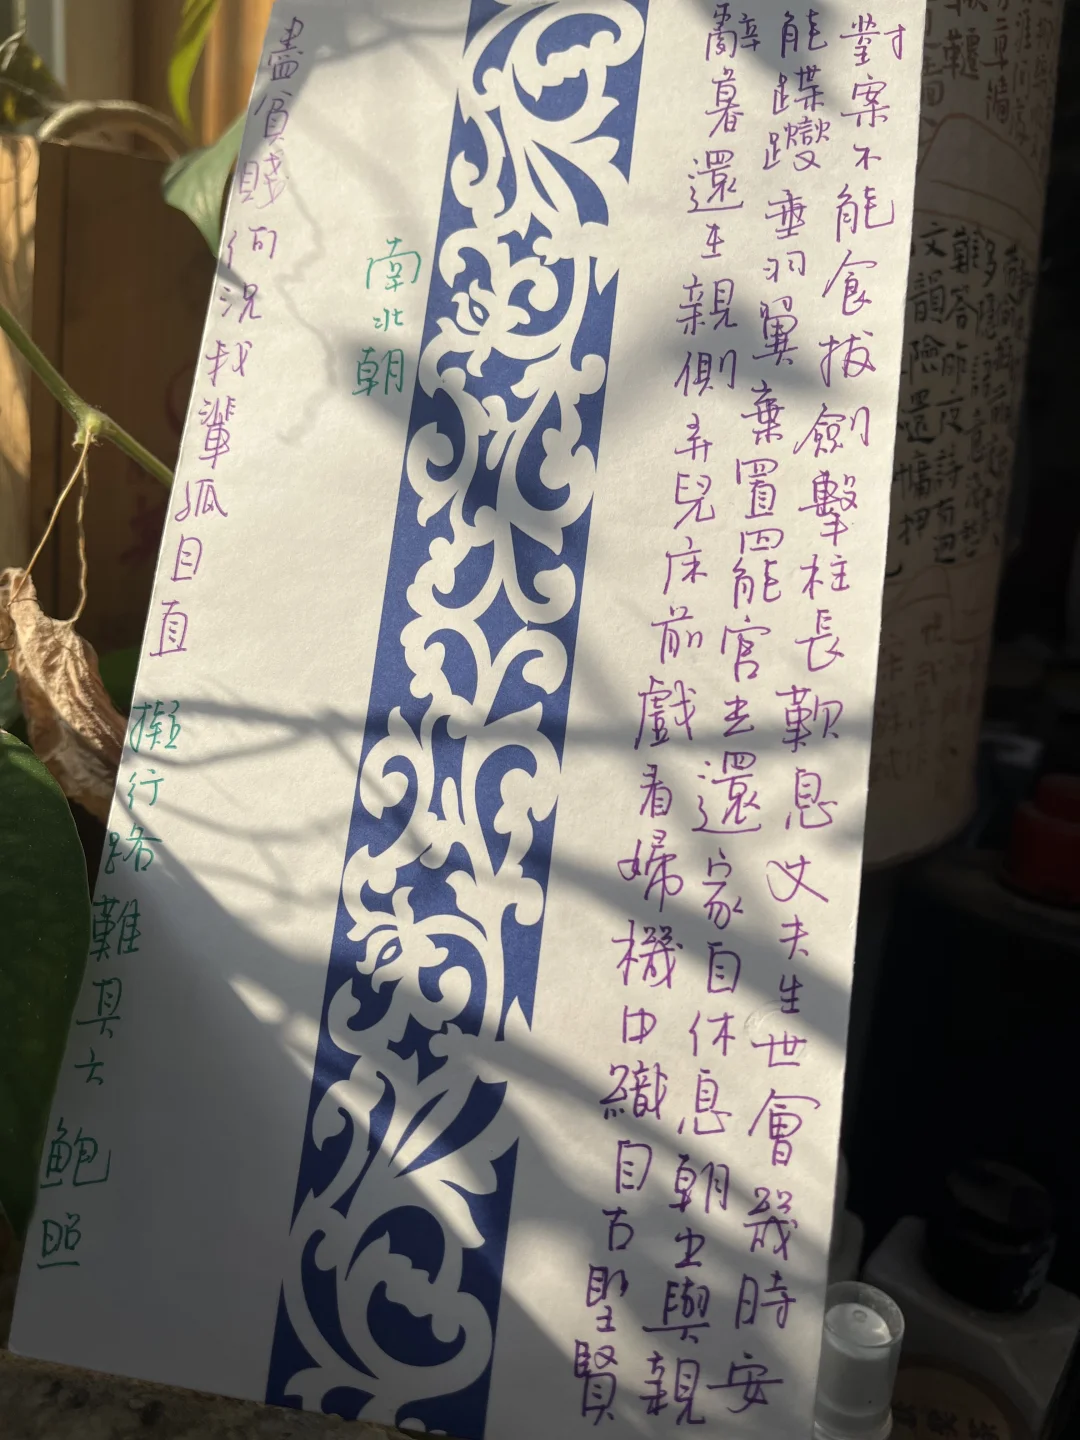 對案不能食拔劍擊柱長歎息丈夫生世會幾時安
能蹀躞垂羽翼棄置罷官去還家自休息朝出與親
辭暮還在親側弄兒床前戲看婦機中織自古聖賢
南北朝
盡貧賤何況我輩孤且直 擬行路難其六 鮑照